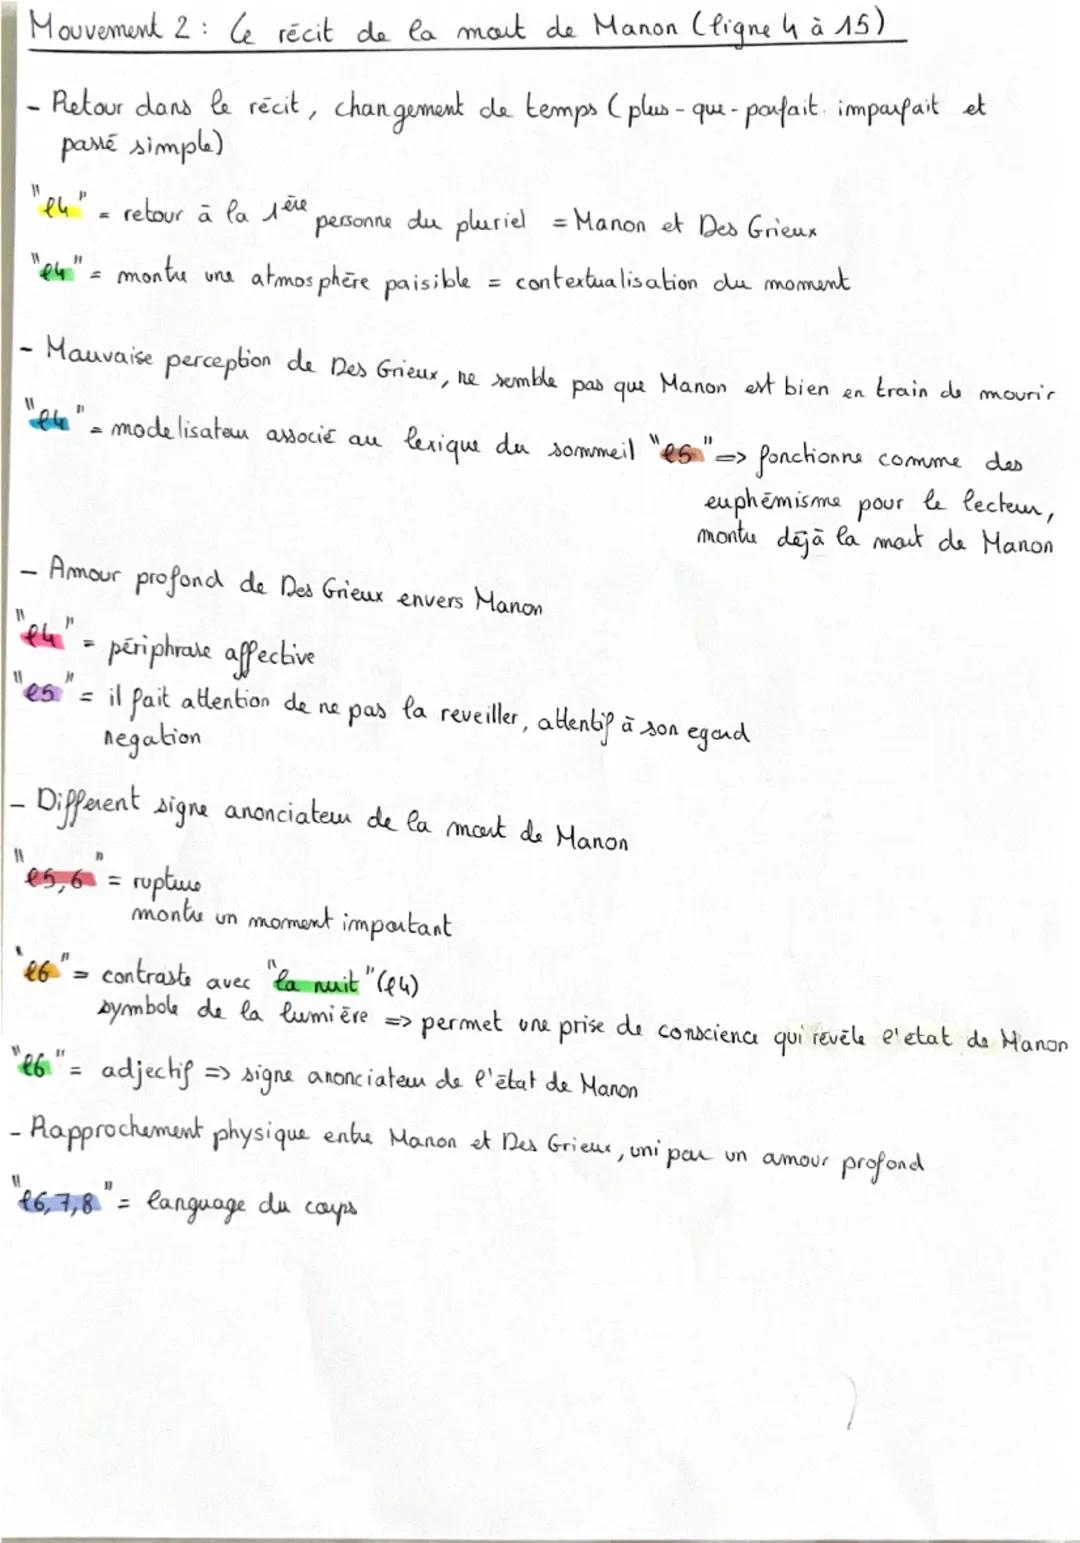 Mouvement 2 : Le récit de la mort de Manon (ligne 4 à 15)
- Retour dans le récit, changement de temps (plus-que-parfait. imparfait et
passé simple)
"l4" = retour à la 1ère personne du pluriel = Manon et Des Grieux
"l4" = montre une atmosphère paisible = contextualisation du moment
- Mauvaise perception de Des Grieux, ne semble pas que Manon est bien en train de mourir
"l4" = modelisateur associé au lexique du sommeil "l5" => fonctionne comme des
euphémisme pour le lecteur,
montre déjà la mort de Manon
- Amour profond de Des Grieux envers Manon
"l4" = périphrase affective
"l5" = il fait attention de ne pas la reveiller, attentif à son egard
negation
- Different signe anonciateur de la mort de Manon
"l5,6" = rupture
montre un moment important
"l6" = contraste avec "la nuit" (l4)
symbole de la lumière => permet une prise de conscience qui révèle l'etat de Manon
"l6" = adjectif => signe anonciateur de l'état de Manon
- Rapprochement physique entre Manon et Des Grieux, uni par un amour profond
"l6,7,8" = language du corps